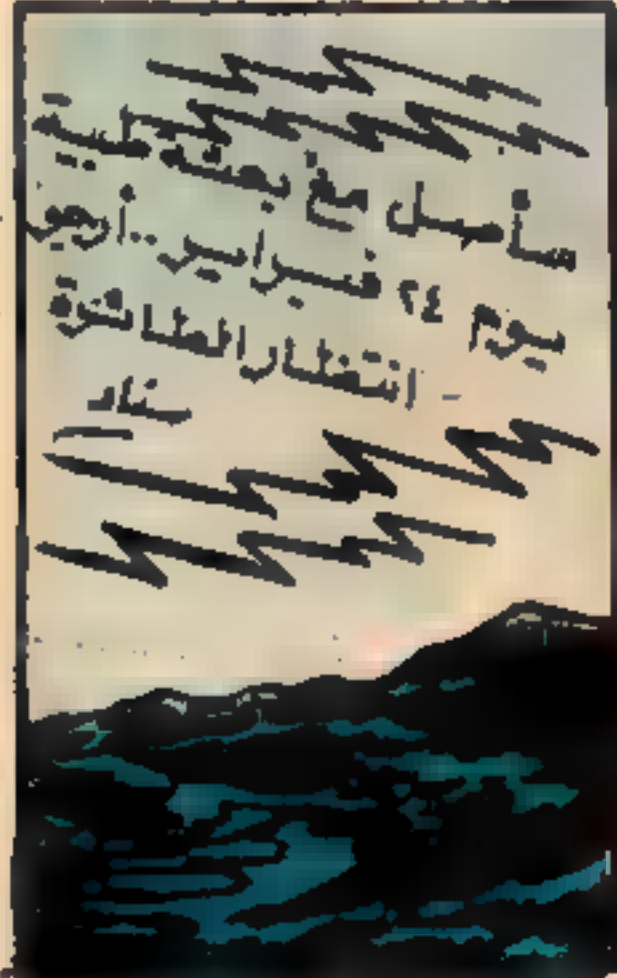 سأصل مع بعثة طبية
يوم ٢٤ فبراير .. أرجو
انتظار الطائرة